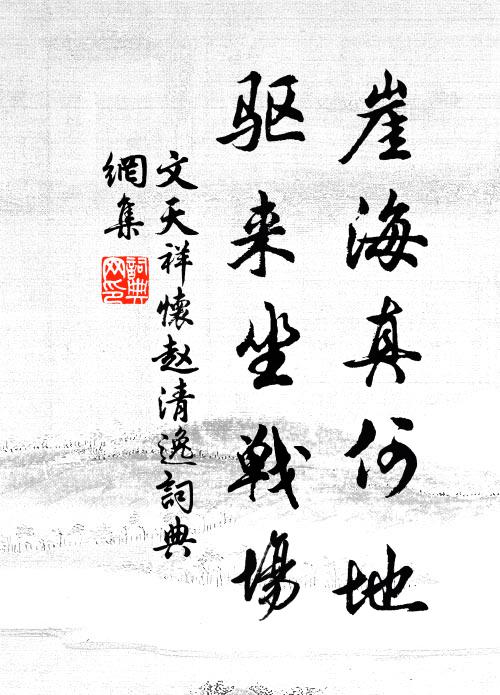 崖海真何地
驱来坐戰場
文天祥懷赵清逸詞典
網集
詞典
网印